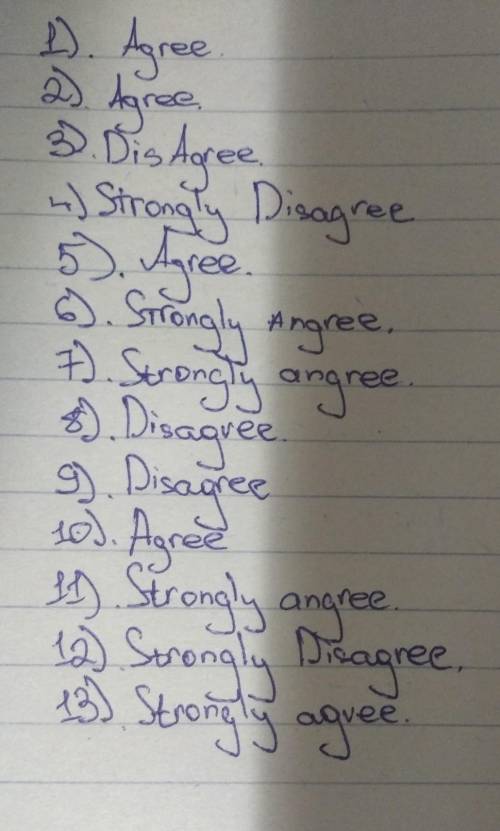 1). Agree.
2). Agree.
3). DisAgree.
4) Strongly Disagree
5). Agree.
6). Strongly Angree.
7). Strongly angree.
8). Disagree.
9). Disagree
10). Agree
11). Strongly angree.
12). Strongly Disagree.
13). Strongly agree.